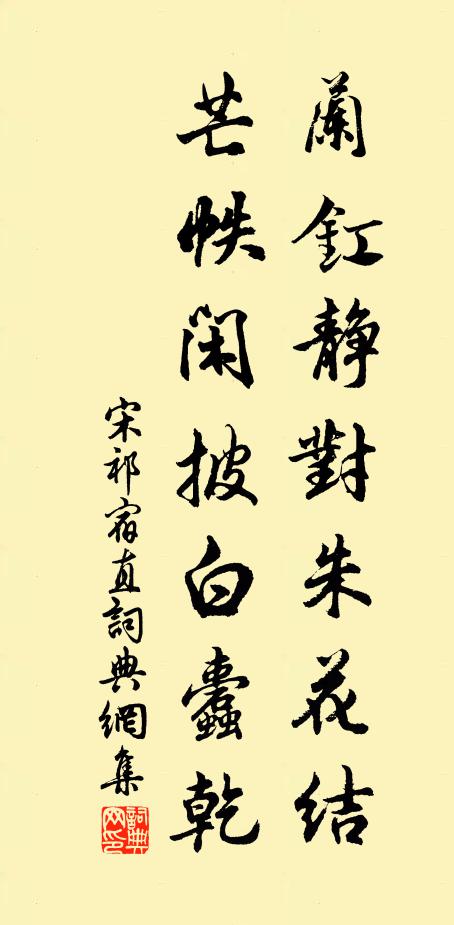 蘭釭静對朱花結
芒帙閑披白蠹乾
宋祁宿直詞典網集
詞典网印